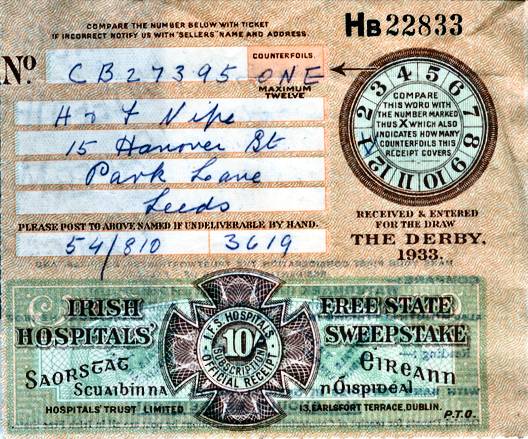 COMPARE THE NUMBER BELOW WITH TICKET
IF INCORRECT NOTIFY US WITH "SELLERS" NAME AND ADDRESS
HB 22833
No. CB27395 ONE
COUNTERFOILS.
MAXIMUM
TWELVE
1 2 3 4 5 6 7 8 9 10 11 12
COMPARE
THIS WORD WITH
THE NUMBER MARKED
THUS X WHICH ALSO
INDICATES HOW MANY
COUNTERFOILS THIS
RECEIPT COVERS
15 Hanover St
Park Lane
Leeds
PLEASE POST TO ABOVE NAMED IF UNDELIVERABLE BY HAND.
54/810 3619
RECEIVED & ENTERED
FOR THE DRAW
THE DERBY.
1933.
IRISH FREE STATE
HOSPITALS' SWEEPSTAKE
I.F.S. HOSPITALS
10/-
SUBSCRIPTION
OFFICIAL RECEIPT
Saorstát Éireann
Scuaibín na nOispidéal
HOSPITALS' TRUST LIMITED 13, EARLSFORT TERRACE, DUBLIN.
P.T.O.